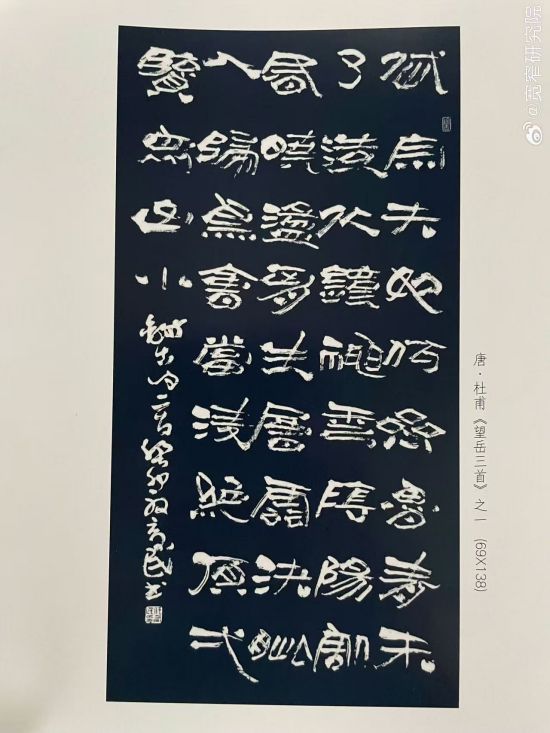 岱宗夫如何齊魯青未
了造化鐘神秀陰陽割
昏曉盪胸生層雲決眥
入歸鳥會當凌絕頂弌
覽眾山小
癸卯 書
唐·杜甫《望岳三首》之一 (69X138)
@宽窄研究院